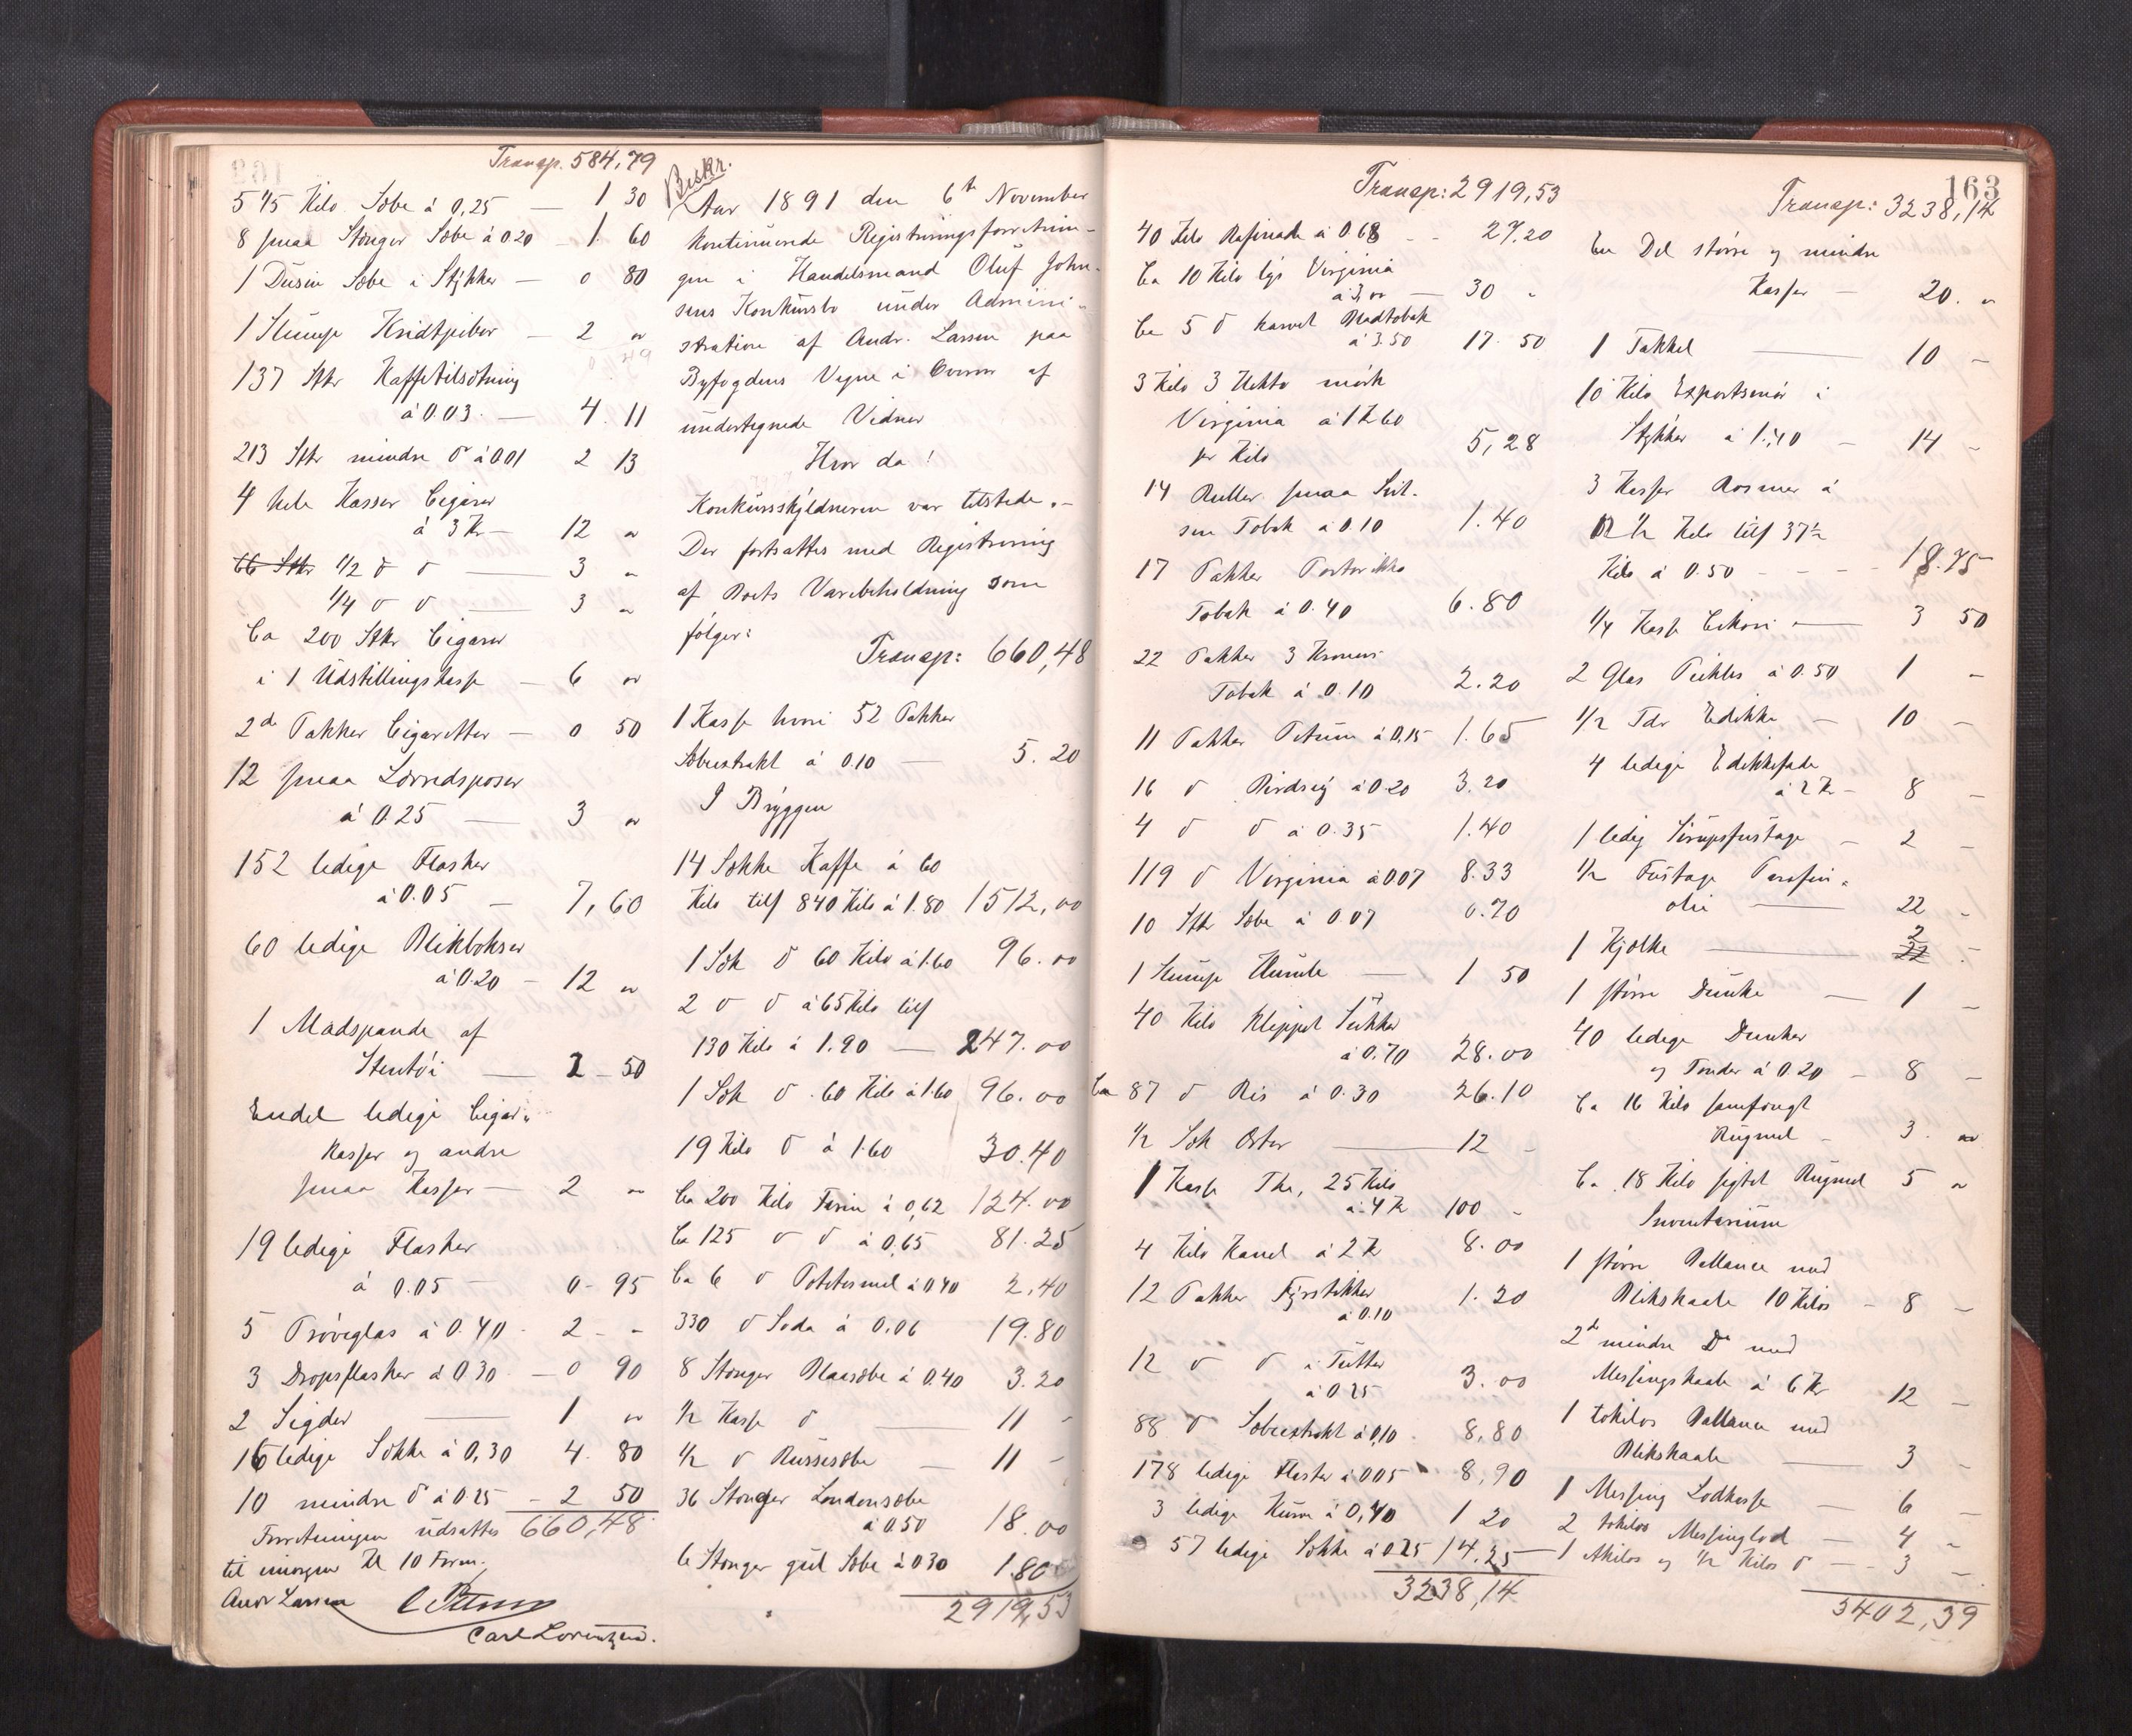 Transp. 584,79
5 45 Kilo Sæbe á 0,25 — 1 30
8 smaa Stænger Sæbe á 0 20 — 1. 60
1 Dusin Sæbe i Stykker — 0 80
1 Slump Kridtpiber — 2 "
137 Stkr Kaffetilsætning
á 0.03. — 4. 11
213 Stkr mindre do á 0.01 2 13
4 hele Kasser Cigarer
á 3 Kr — 12 "
1/2 do do — 3 "
1/4 do do — 3 "
Ca 200 Stkr Cigarer
i 1 Udstillingskasse — 6 "
2de Pakker Cigaretter — 0 50
12 smaa Lærredsposer
á 0.25 — 3 "
152 ledige Flasker
á 0.05 — 7,60
60 ledige Blikbokser
á 0.20 — 12 "
1 Madspande af
Stentøi — 2 — 50
Endel ledige Cigar-
kasser og andre
smaa Kasser — 2 "
19 ledige Flasker
á 0.05 — 0 - 95
5 Prøveglas á 0.40 - 2 - -
3 Dropsflasker á 0 30 — 0 90
2 Sigder — 1 "
16 ledige Sække á 0,30 4. 80
10 mindre do á 0.25 — 2 50
660,48
Forretningen udsattes
til imorgen Kl 10 Form.
Andr Larsen
Carl Lorentzen.
Beskr.
Aar 1891 den 6te November
kontinuerede Registreringsforretnin-
gen i Handelsmand Oluf John-
sens Konkursbo under Admini-
stration af Andr. Larsen paa
Byfogdens Vegne i Overvær af
undertegnede Vidner
Hvor da!
Konkursskyldneren var tilstede. -
Der fortsattes med Registrering
af Boets Varebeholdning som
følger:
Transp: 660,48
1 Kasse hvori 52 Pakker
Sæbeextrakt á 0.10 — 5. 20
I Bryggen
14 Sække Kaffe á 60
Kilo tils 840 Kilo á 1.80 1512,00
1 Sæk do 60 Kilo á 1.60 96. 00
2 do do á 65 Kilo tils
130 Kilo á 1.90 — 247. 00
1 Sæk do 60 Kilo á 1.60 96. 00
19 Kilo do á 1.60 30.40
Ca 200 Kilo Farin á 0,62 124. 00
Ca 125 do do á 0,65 81.25
Ca 6 do Potetesmel á 0.40 2,40
330 do Soda á 0,06 19.80
8 Stænger Blaasæbe á 0.40 3.20
1/2 Kasse do — 11 -
1/2 do Russesæbe — 11 -
36 Stænger Londonsæbe
á 0.50 18.00
6 Stænger gul Sæbe á 0 30 1.80
2919,53
163
Transp: 2919,53
40 Kilo Rafinade á 0.68 - - 27,20
Ca 10 Kilo lys Virginia
á 3,00 — 30 -
Ca 5 do karvet Bladtobak
á 3.50 17. 50
3 Kilo 3 Hekto mørk
Virginia á 1 K 60
pr Kilo 5,28
14 Ruller smaa
Tobak á 0.10 1.40
17 Pakker Portoriko
Tobak á 0.40 6.80
22 Pakker 3 Kroners
Tobak á 0.10 2.20
11 Pakker Petum á 0,15 1.65
16 do Birdsey á 0.20 3.20
4 do do á 0.35 1.40
119 do Virginia á 0 07 8.33
10 Stkr Sæbe á 0.07 0.70
1 Slump Humle — 1 50
40 Kilo Kleppet Sukker
á 0.70 28.00
Ca 87 do Ris á 0.30 26.10
1/2 Sæk Orter — 12 -
1 Kasse The, 25 Kilo
á 4 Kr 100 -
4 Kilo Kanel á 2 K 8.00
12 Pakker Fyrstikker
á 0.10 1.20
12 do do i Futter
á 0.25 3.00
88 do Sæbeextrakt á 0,10 8,80
178 ledige Flasker á 0.05 8,90
3 ledige Kurve á 0,40 1 20
57 ledige Sække á 0.25 14,25
3238,14
Transp: 3238,14
En Del større og mindre
Kasser — 20. "
1 Takkel — 10 -
10 Kilo Exportsmør i
Stykker á 1.40 — 14 -
3 Kasser Rosiner á
12 1/2 Kilo tils 37 1/2
Kilo á 0.50 - - - - 18.75
1/4 Kasse Cikori — 3 50
2 Glas Pickles á 0.50 1 -
1/2 Tdr Edikke — 10 -
4 ledige Edikkefade
á 2 K — 8 -
1 ledig Sirupsfustage — 2 -
1/2 Fustage Parafin-
olie — 22 -
1 Kjælke — 2
1 større Dunke — 1 -
40 ledige Dunker
og Tønder á 0.20 — 8 -
Ca 16 Kilo samfængt
Rugmel — 3. "
Ca 18 Kilo sigtet Rugmel 5 "
Inventarium
1 større Ballance med
Blikskaale 10 Kilos — 8 -
2de mindre Do med
Messingskaale á 6 Kr 12 -
1 tokilos Ballance med
Blikskaale — 3 -
1 Messing Lodkasse — 6 -
2 tokilos Messinglod — 4 -
1 1kilos og 1/2 Kilos do — 3 -
3402,39